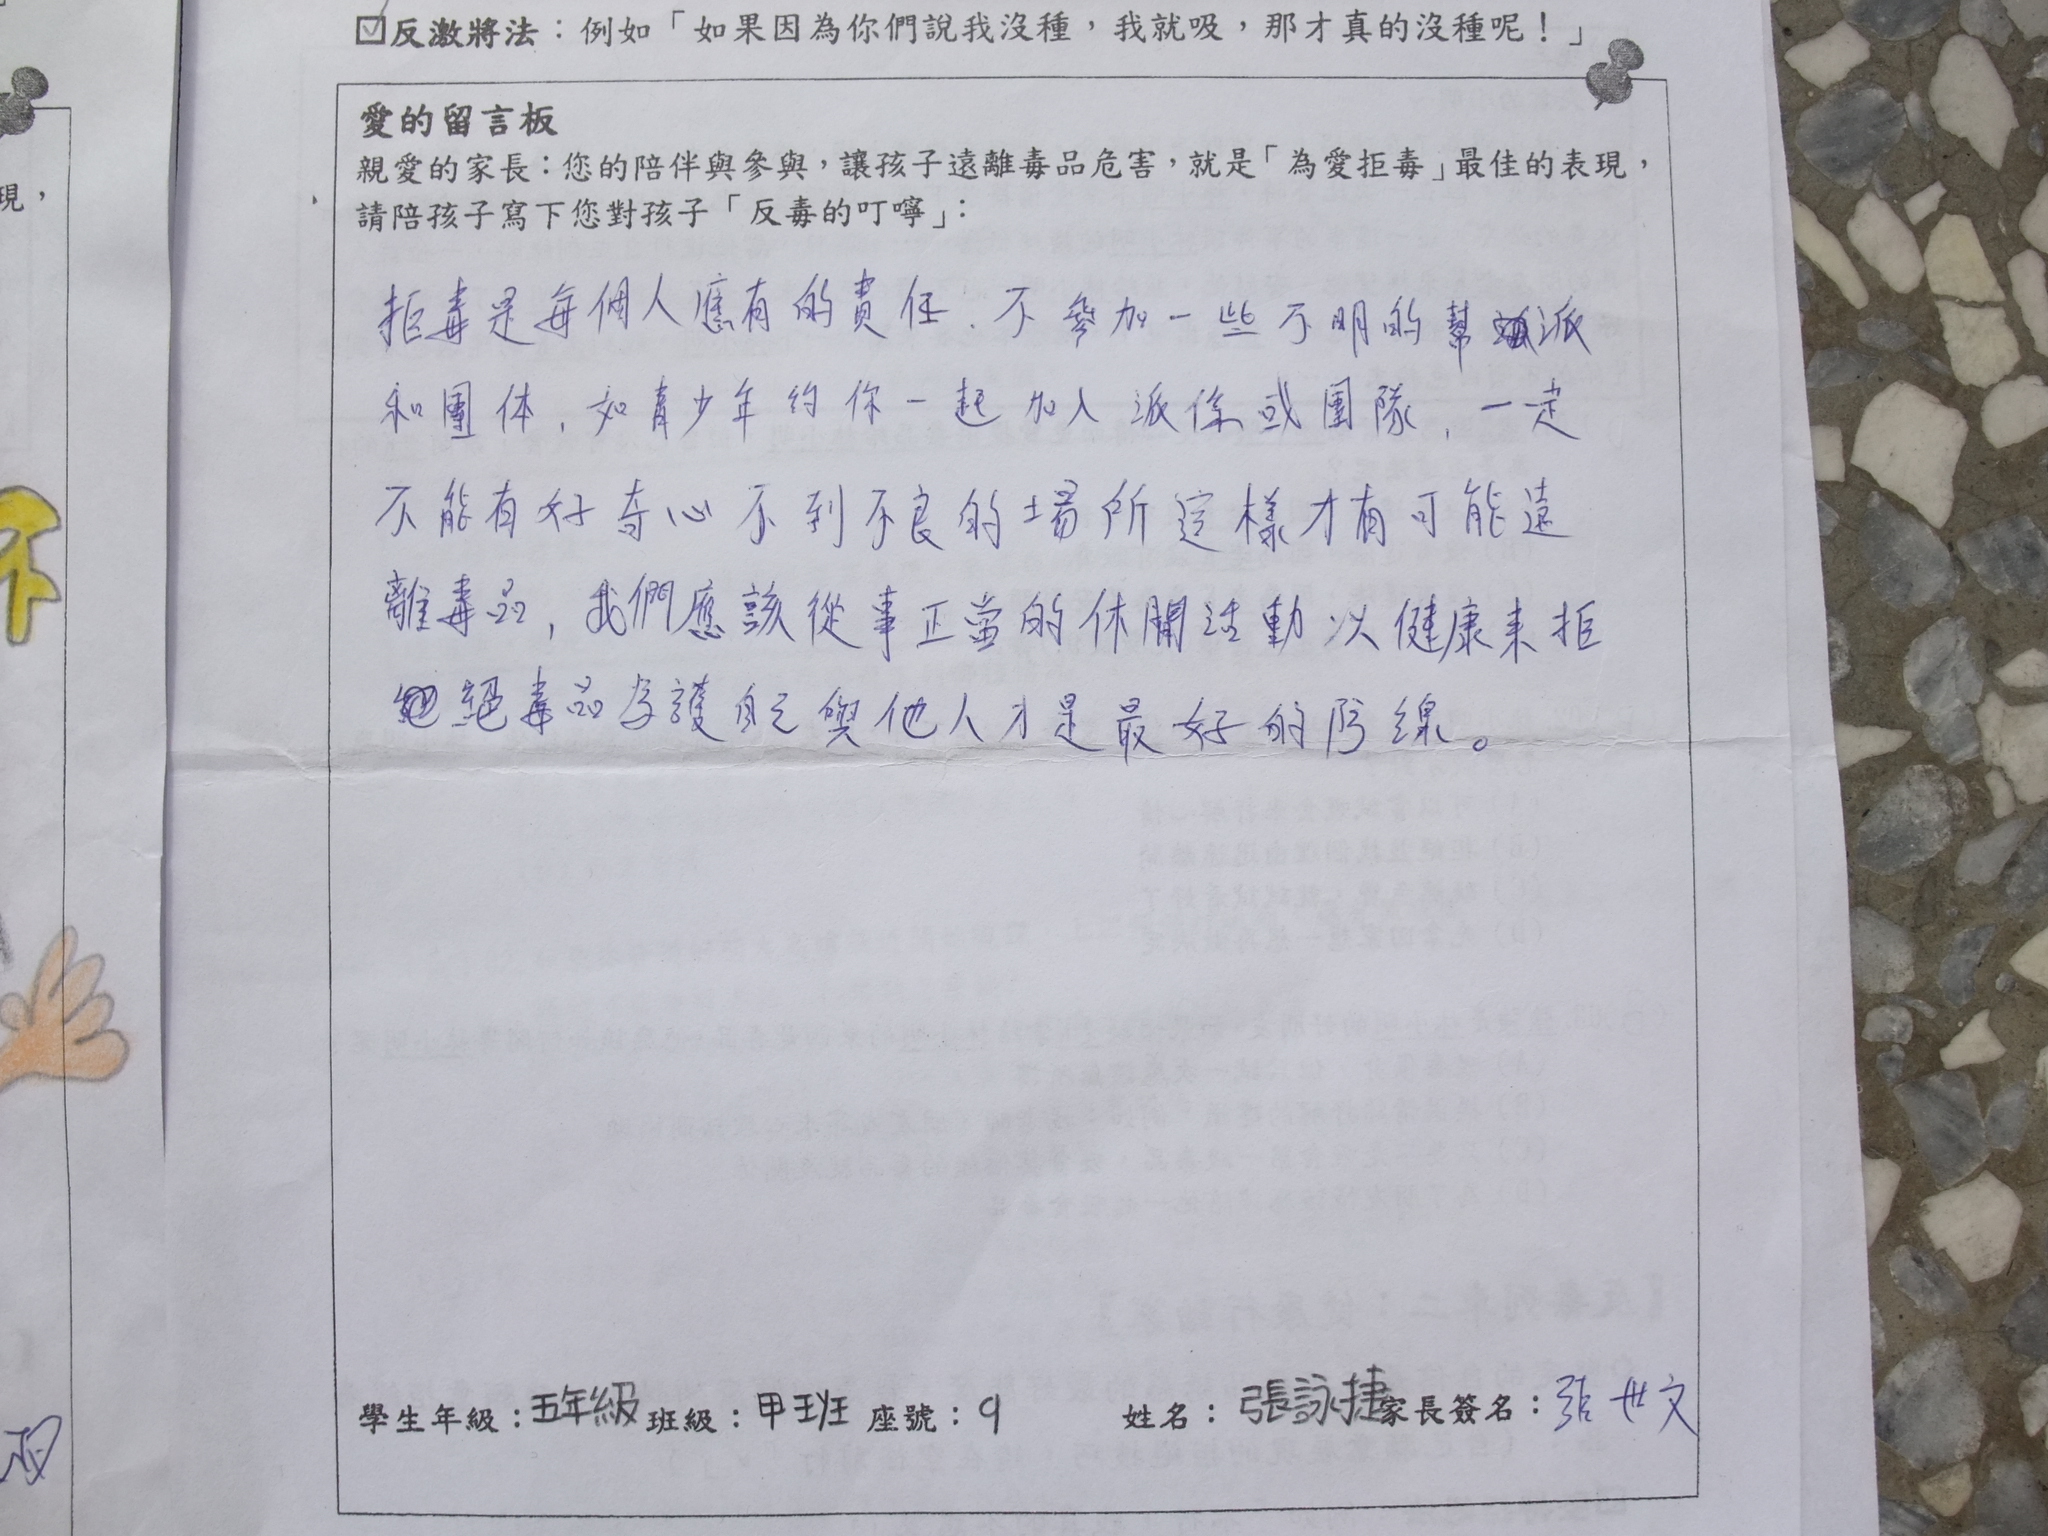 ☑反激將法：例如「如果因為你們說我沒種，我就吸，那才真的沒種呢！」
愛的留言板
親愛的家長：您的陪伴與參與，讓孩子遠離毒品危害，就是「為愛拒毒」最佳的表現，
請陪孩子寫下您對孩子「反毒的叮嚀」：
拒毒是每個人應有的責任.不參加一些不明的幫派
和團体,如青少年約你一起加入派係或團隊,一定
不能有好奇心不到不良的場所這樣才有可能遠
離毒品,我們應該從事正當的休閒活動以健康來拒
絕毒品為護自己與他人才是最好的防線。
學生年級：五年級 班級：甲班 座號：9 姓名：張詠捷 家長簽名：張世文
現，
不